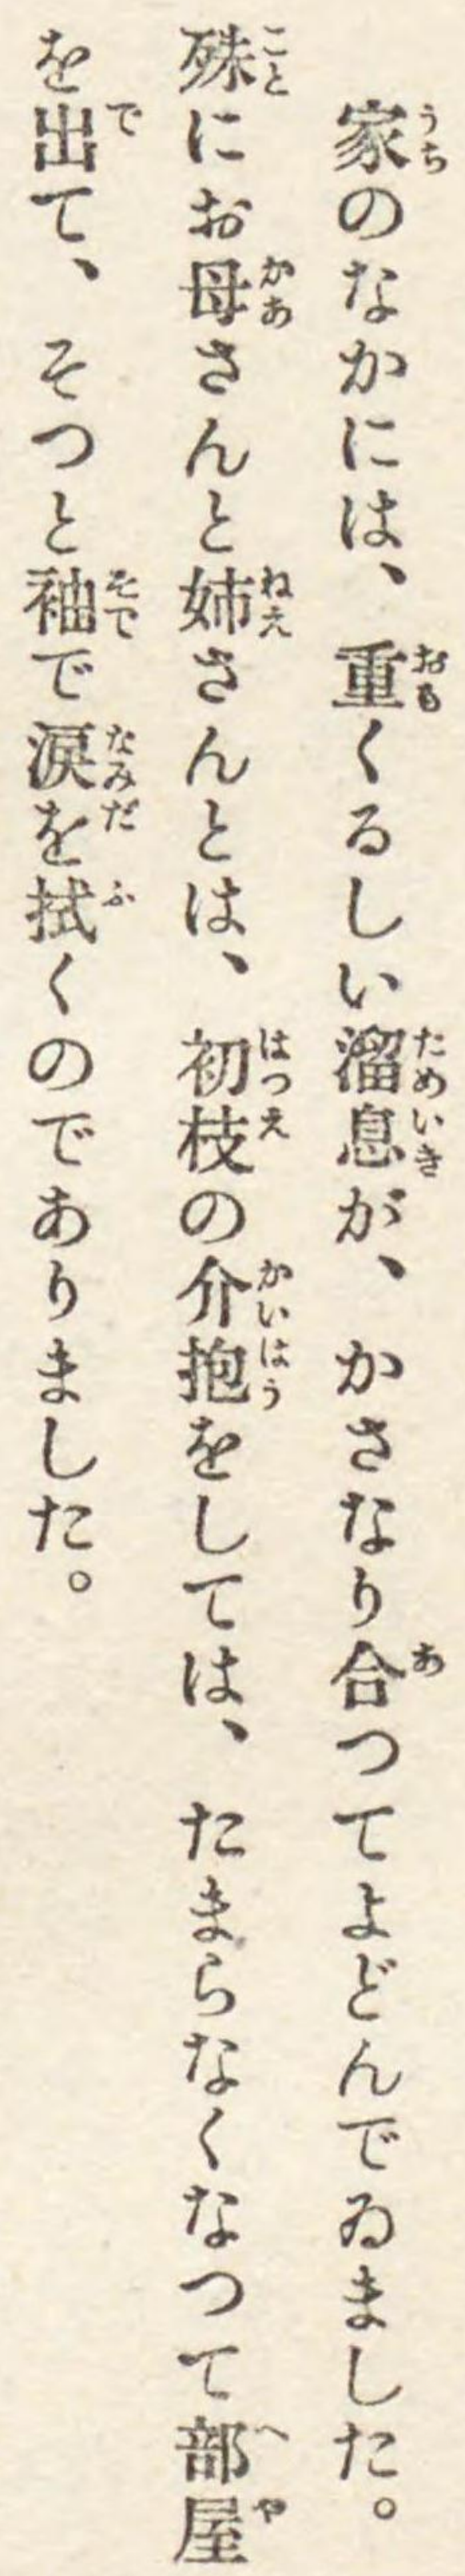 家のなかには、重くるしい溜息が、かさなり合つてよどんでゐました。
殊にお母さんと姉さんとは、初枝の介抱をしては、たまらなくなつて部屋
を出て、そつと袖で涙を拭くのでありました。